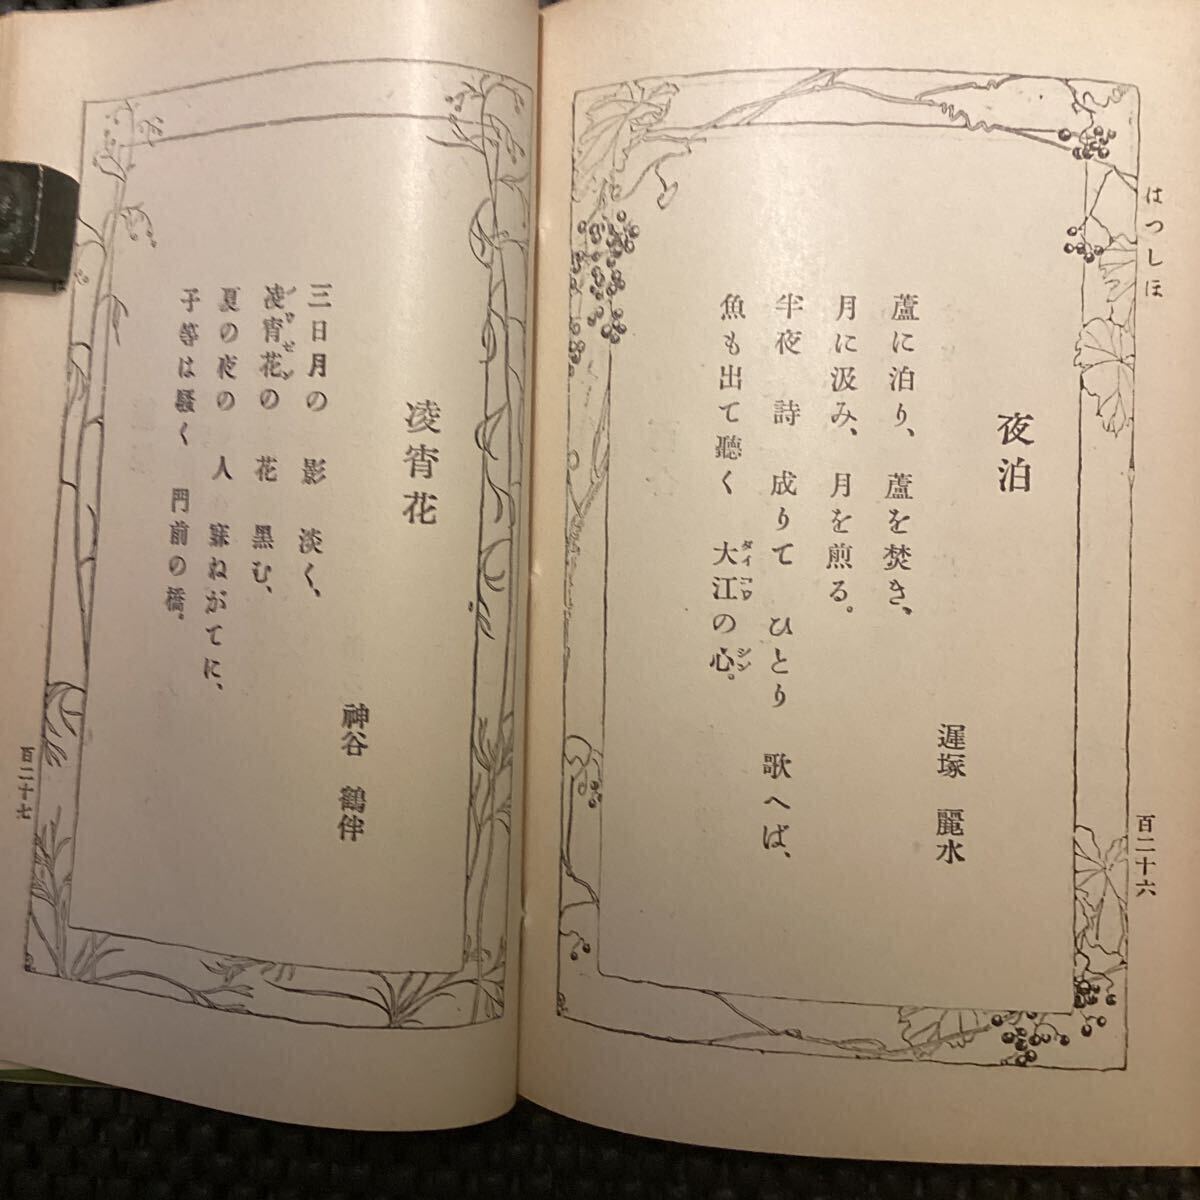 はつしほ
夜泊
遅塚 麗水
蘆に泊り、蘆を焚き、
月に汲み、月を煎る。
半夜 詩 成りて ひとり 歌へば、
魚も出て聽く 大江の心。
タイコウ
シン
百二十六
凌宵花
神谷 鶴伴
三日月の 影 淡く、
凌宵花の 花 黒む、
ノウゼン
夏の夜の 人 寐ねがてに、
子等は騒く 門前の橋。
百二十七